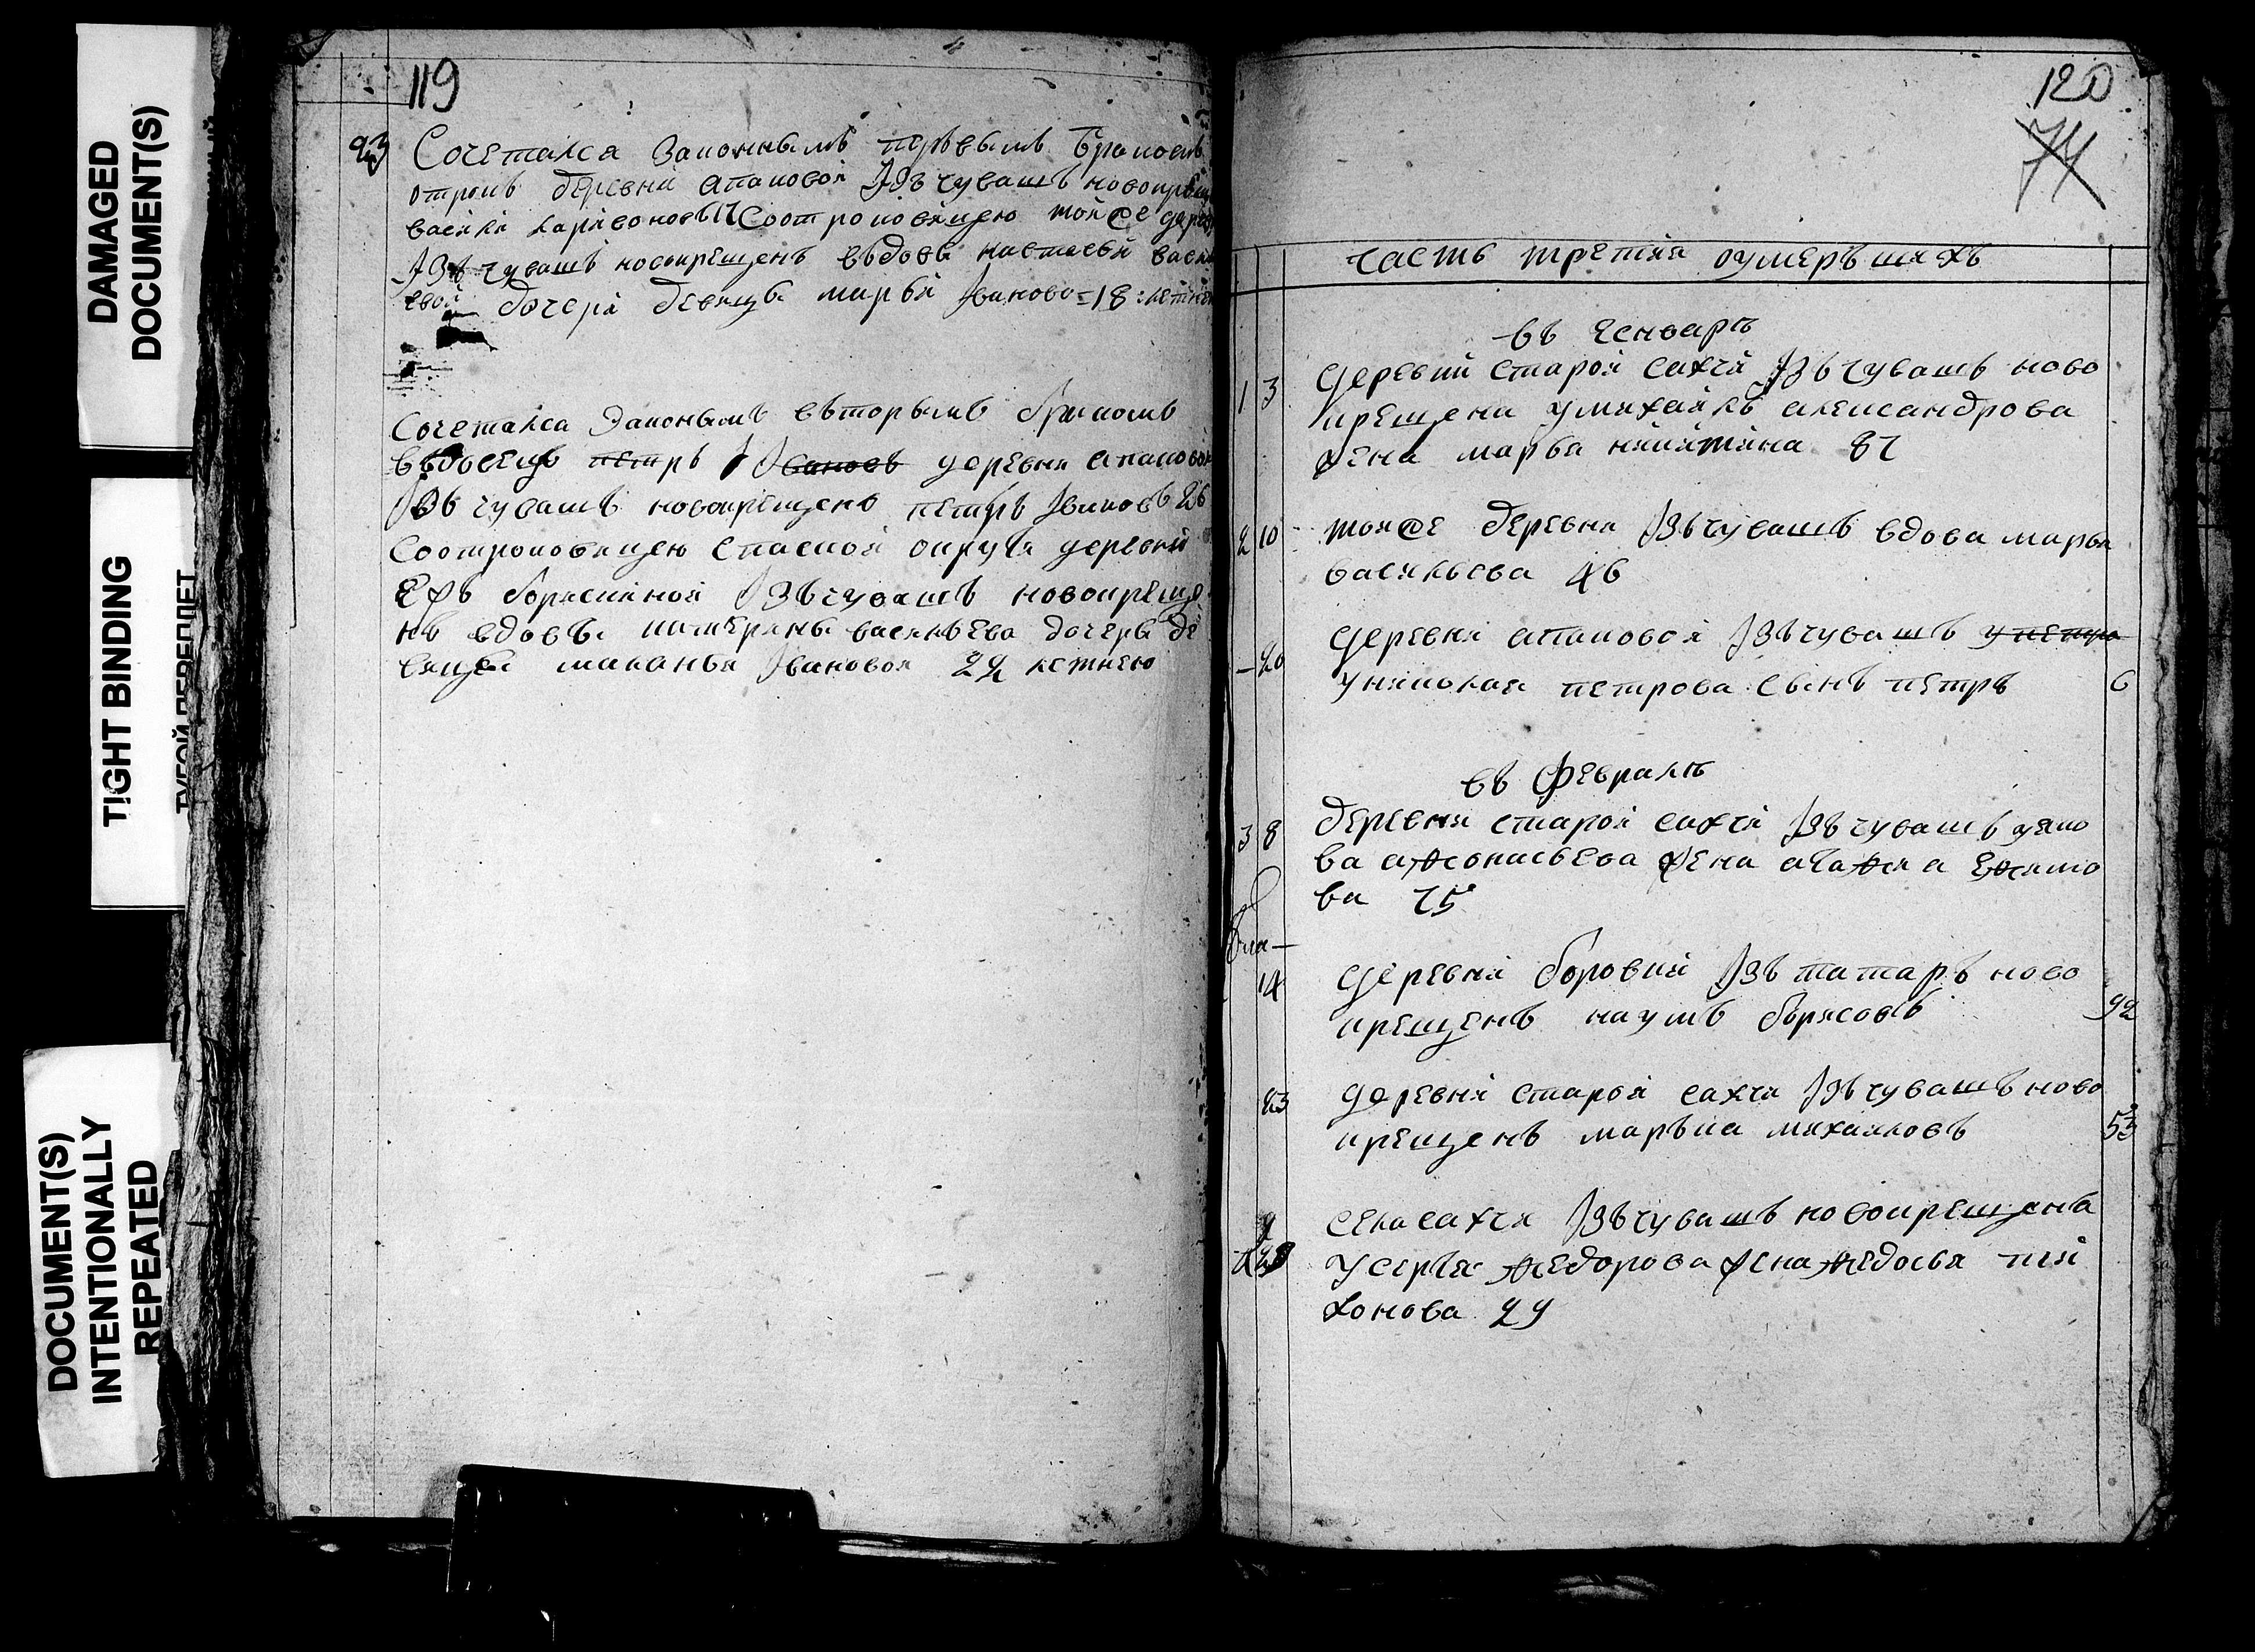 DAMAGED
DOCUMENT(S)
TIGHT BINDING
ТУГОЙ ПЕРЕПЛЕТ
DOCUMENT(S)
INTENTIONALLY
REPEATED
119
23 Сочетался законнымъ первымъ бракомъ
отрокъ деревни апаковой Iзъ чувашъ новокрещ
васили ларивоновъ 17 Соотроковицею тояже дерев
Iзъ чувашъ новокрещенъ вдовы настасьи васил
евой дочери девицы марьи Iваново 18 летнею
Сочетался Законымъ въторымъ бракомъ
въдовецъ петръ Iвановъ деревни апаковой
Iзъ чувашъ новокрещенъ петръ Iвановъ 26
Соотроковицею спаской округи деревни
Iзъ чувашъ новокреще
нъ вдовы катерины васильева дочери де
вицы маланьи Iвановой 22 летнею
120
74
часть третия оумеръшихъ
въ генваръ
1 3 деревни старои сахчи Iзъ чувашъ ново
крещена умихаилъ александрова
жена марва никитина 87
2 10 тояже деревни Iзъ чувашъ вдова марья
васильева 46
20 деревни апаковои Iзъ чувашъ упетра
униколая петрова сынъ петръ 6
въ февралъ
3 8 деревни старои сахчи Iзъ чувашъ уяко
ва афонасьева жена агафия ефимо
ва 75
14 деревни боровки Iзъ татаръ ново
крещенъ наумъ борисовъ 92
23 деревни старои сахчи Iзъ чувашъ ново
крещенъ маръка михаиловъ 53
села сахчи Iзъ чувашъ новокрещена
усергея федорова жена федосья ти
хонова 29